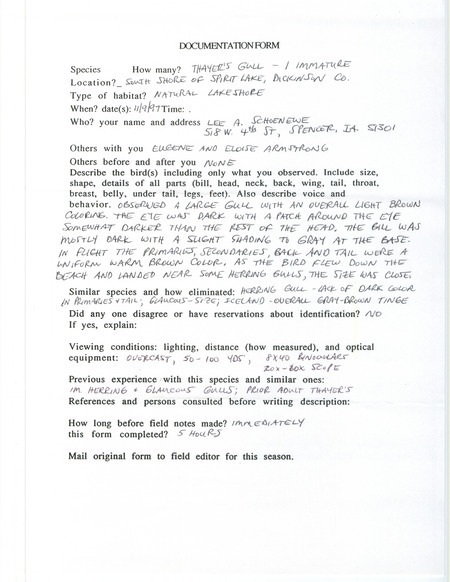 DOCUMENTATION FORM
Species How many? THAYER'S GULL - 1 IMMATURE
Location?_ SOUTH SHORE OF SPIRIT LAKE, DICKINSON CO.
Type of habitat? NATURAL LAKESHORE
When? date(s): 11/9/97 Time: .
Who? your name and address LEE A. SCHOENEWE
518 W. 4th ST, SPENCER, IA. 51301
Others with you EUGENE AND ELOISE ARMSTRONG
Others before and after you NONE
Describe the bird(s) including only what you observed. Include size,
shape, details of all parts (bill, head, neck, back, wing, tail, throat,
breast, belly, under tail, legs, feet). Also describe voice and
behavior. OBSERVED A LARGE GULL WITH AN OVERALL LIGHT BROWN
COLORING. THE EYE WAS DARK WITH A PATCH AROUND THE EYE
SOMEWHAT DARKER THAN THE REST OF THE HEAD. THE BILL WAS
MOSTLY DARK WITH A SLIGHT SHADING TO GRAY AT THE BASE.
IN FLIGHT THE PRIMARIES, SECONDARIES, BACK AND TAIL WERE A
UNIFORM WARM BROWN COLOR. AS THE BIRD FLEW DOWN THE
BEACH AND LANDED NEAR SOME HERRING GULLS, THE SIZE WAS CLOSE.
Similar species and how eliminated: HERRING GULL - LACK OF DARK COLOR
IN PRIMARIES + TAIL; GLAUCOUS - SIZE; ICELAND - OVERALL GRAY-BROWN TINGE
Did any one disagree or have reservations about identification? NO
If yes, explain:
Viewing conditions: lighting, distance (how measured), and optical
equipment: OVERCAST, 50-100 YDS, 8X40 BINOCULARS
20X-60X SCOPE
Previous experience with this species and similar ones:
IM. HERRING + GLAUCOUS GULLS; PRIOR ADULT THAYER'S
References and persons consulted before writing description:
How long before field notes made? IMMEDIATELY
this form completed? 5 HOURS
Mail original form to field editor for this season.